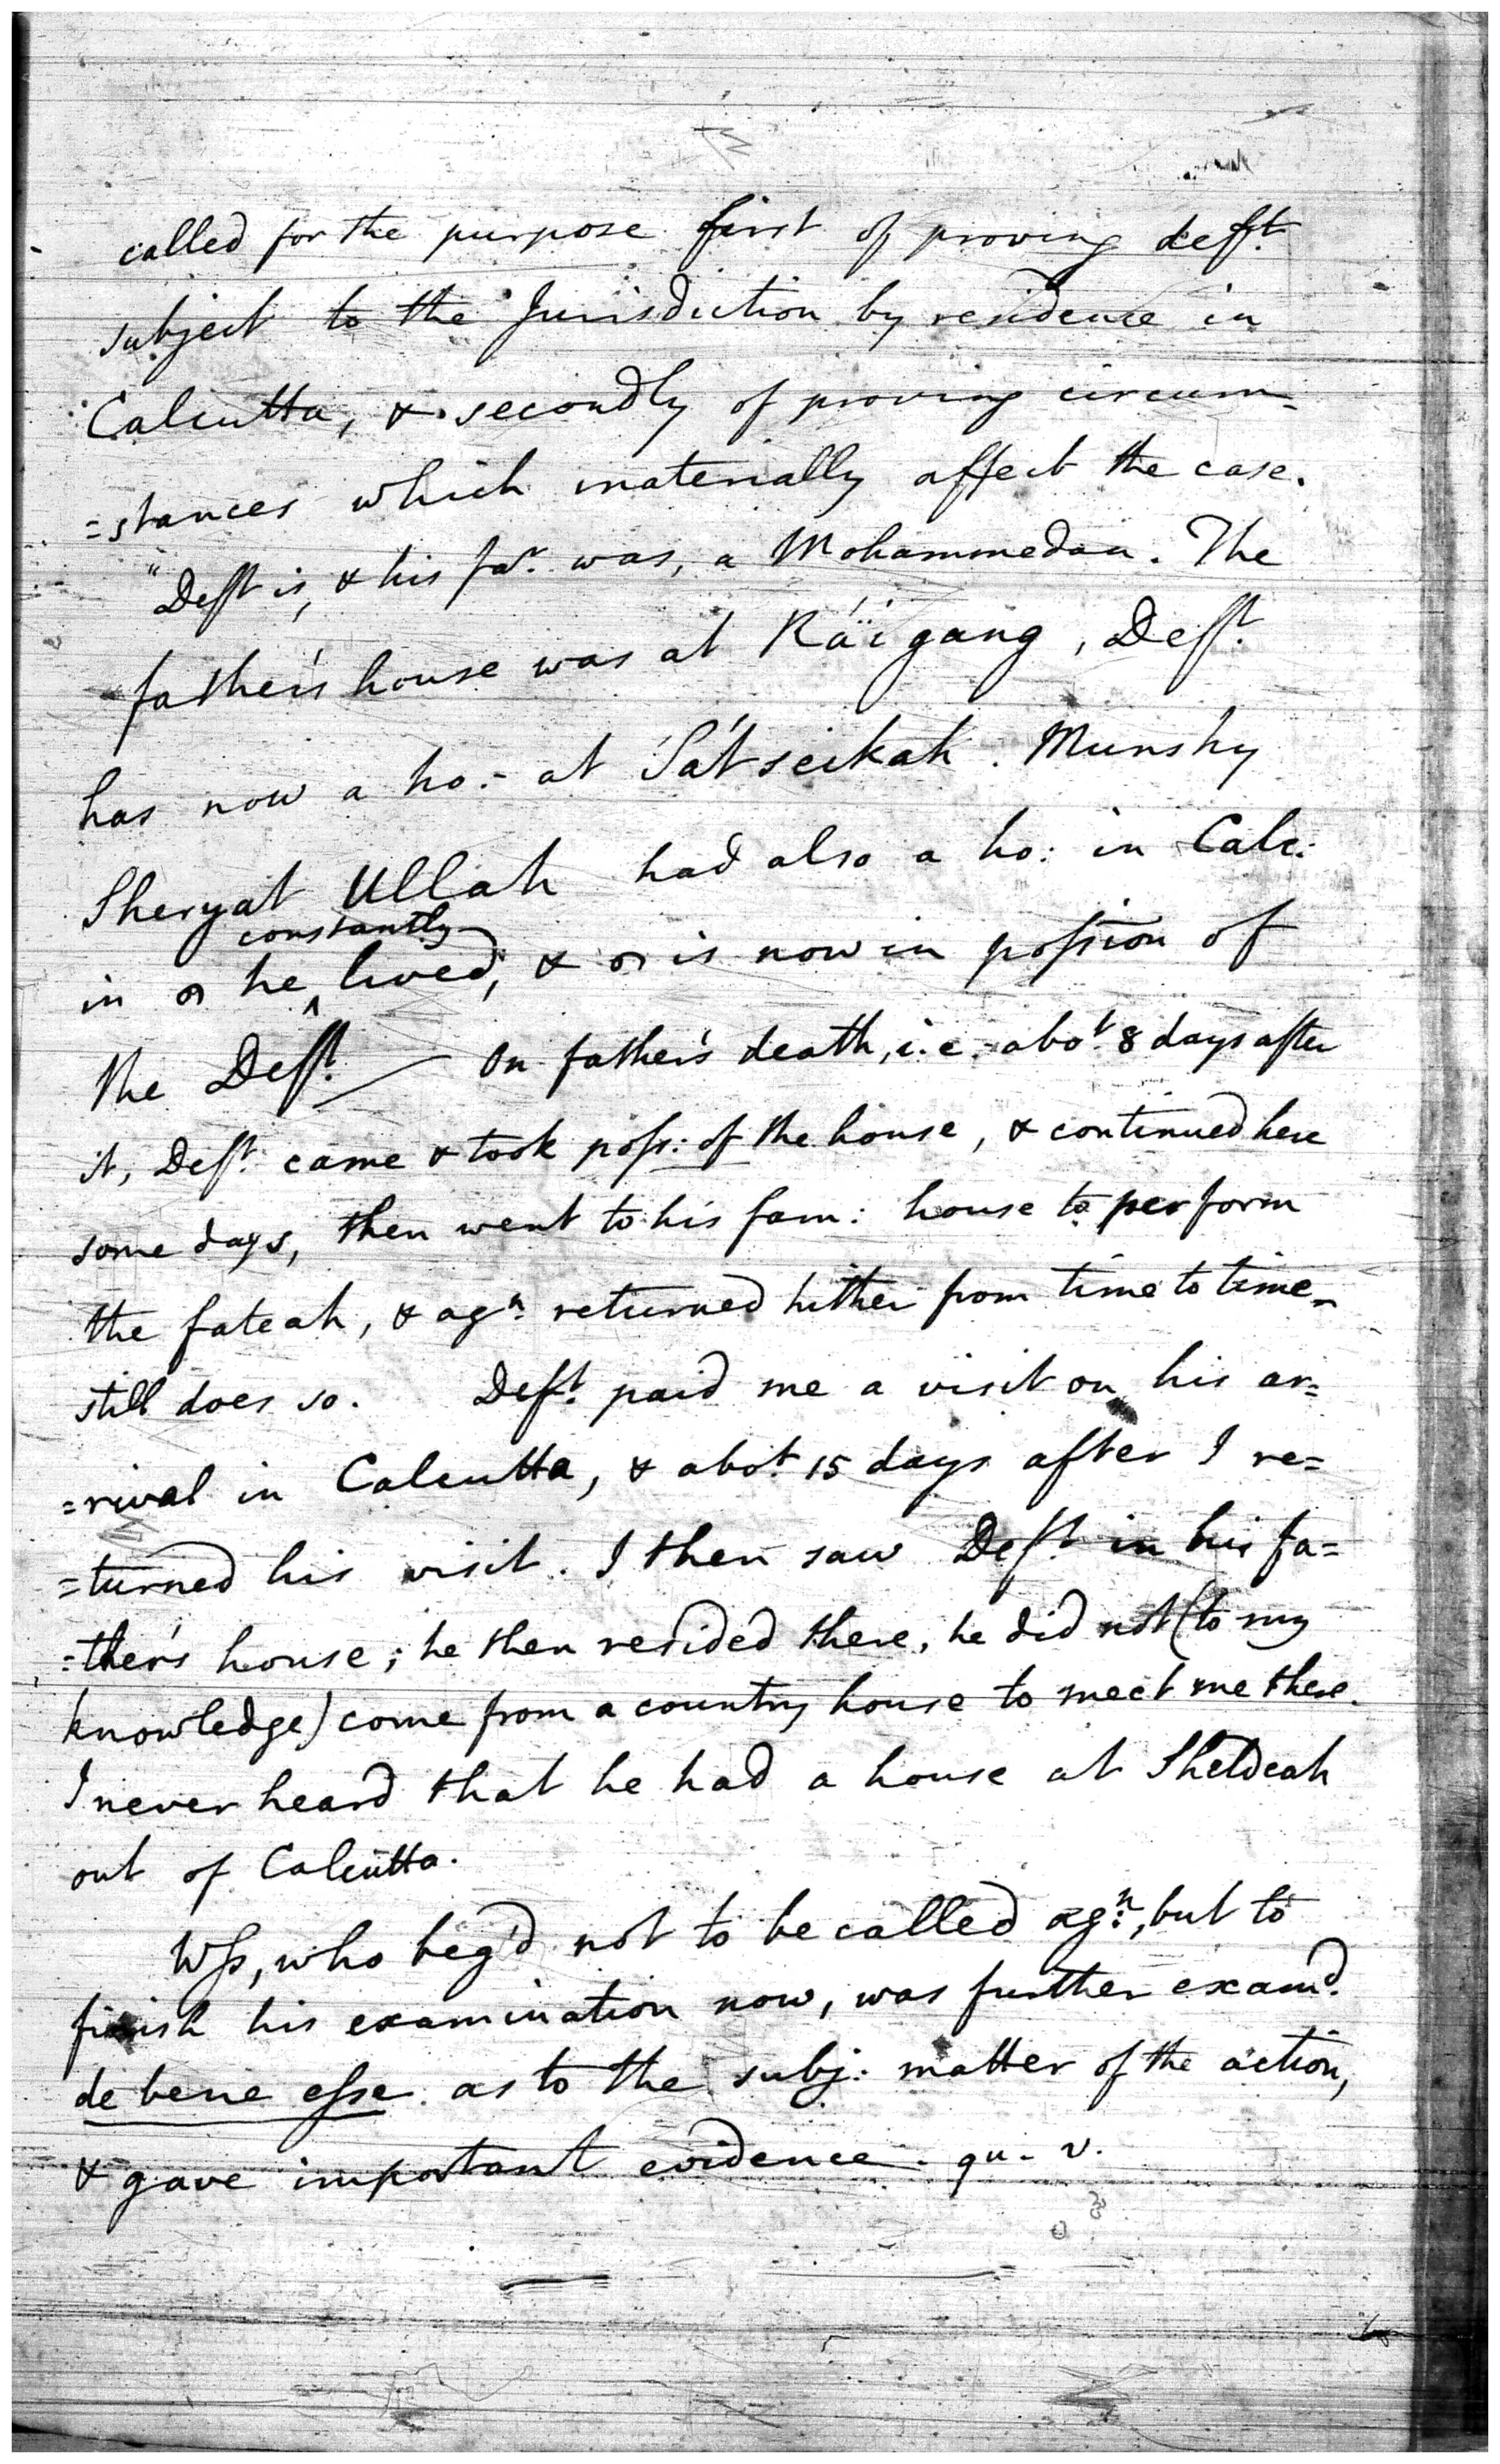 called for the purpose first of proving deft.
subject to the Jurisdiction by residence in
Calcutta, & secondly of proving circum-
=stances which materially affect the case.
"Deft is, & his far. was, a Mohammedan. The
father's house was at Ráïgang, Deft.
has now a ho:- at Sátseikah. Munshy
Sheryat Ullah had also a ho: in Calc:
in he constantly lived, & is now in poſsion of
the Deft. — On father's death, i.e. abot. 8 days after
it, Deft. came & took poſs: of the house, & continued here
some days, then went to his fam: house to perform
the fateah, & agn. returned hither from time to time-
still does so. Deft. paid me a visit on his ar=
=rival in Calcutta, & abot. 15 days after I re=
=turned his visit. I then saw Deft. in his fa=
=ther's house; he then resided there, he did not (to my
knowledge) come from a country house to meet me there.
I never heard that he had a house at Sheldeah
out of Calcutta.
Wſs, who beg'd not to be called agn:, but to
finish his examination now, was further examd.
de bene eſse as to the subj: matter of the action,
& gave important evidence. qu. v.